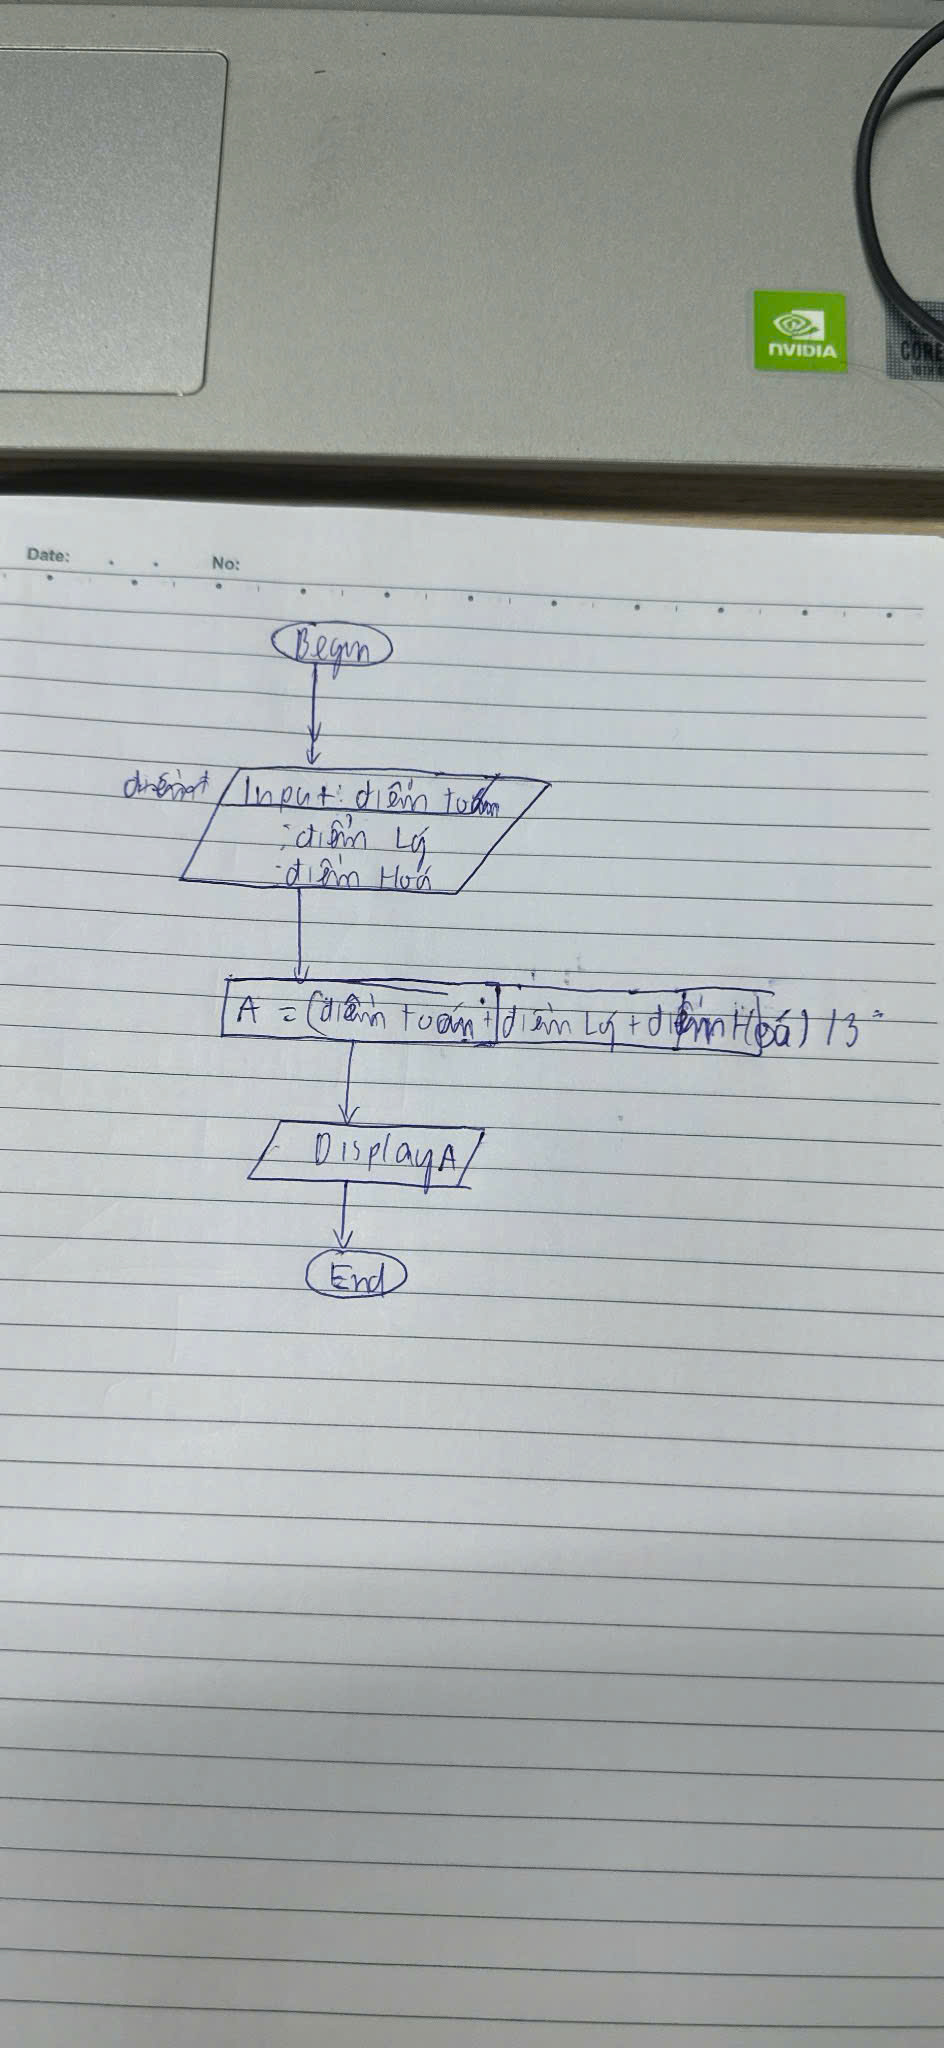 NVIDIA
CORE
Date: No:
Begin
Input: điểm toán
: điểm Lý
: điểm Hoá
A = (điểm toán + điểm Lý + điểm Hoá) / 3
Display A
End